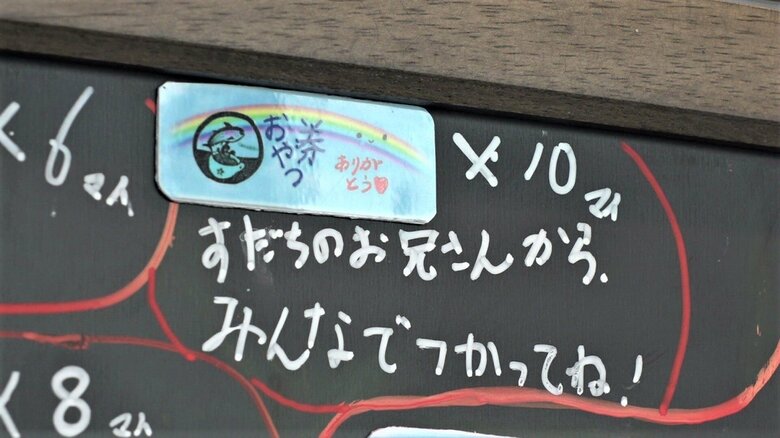 ×6マイ
おやつ
ありがとう
×10マイ
すだちのお兄さんから.
みんなでつかってね!
×8マイ